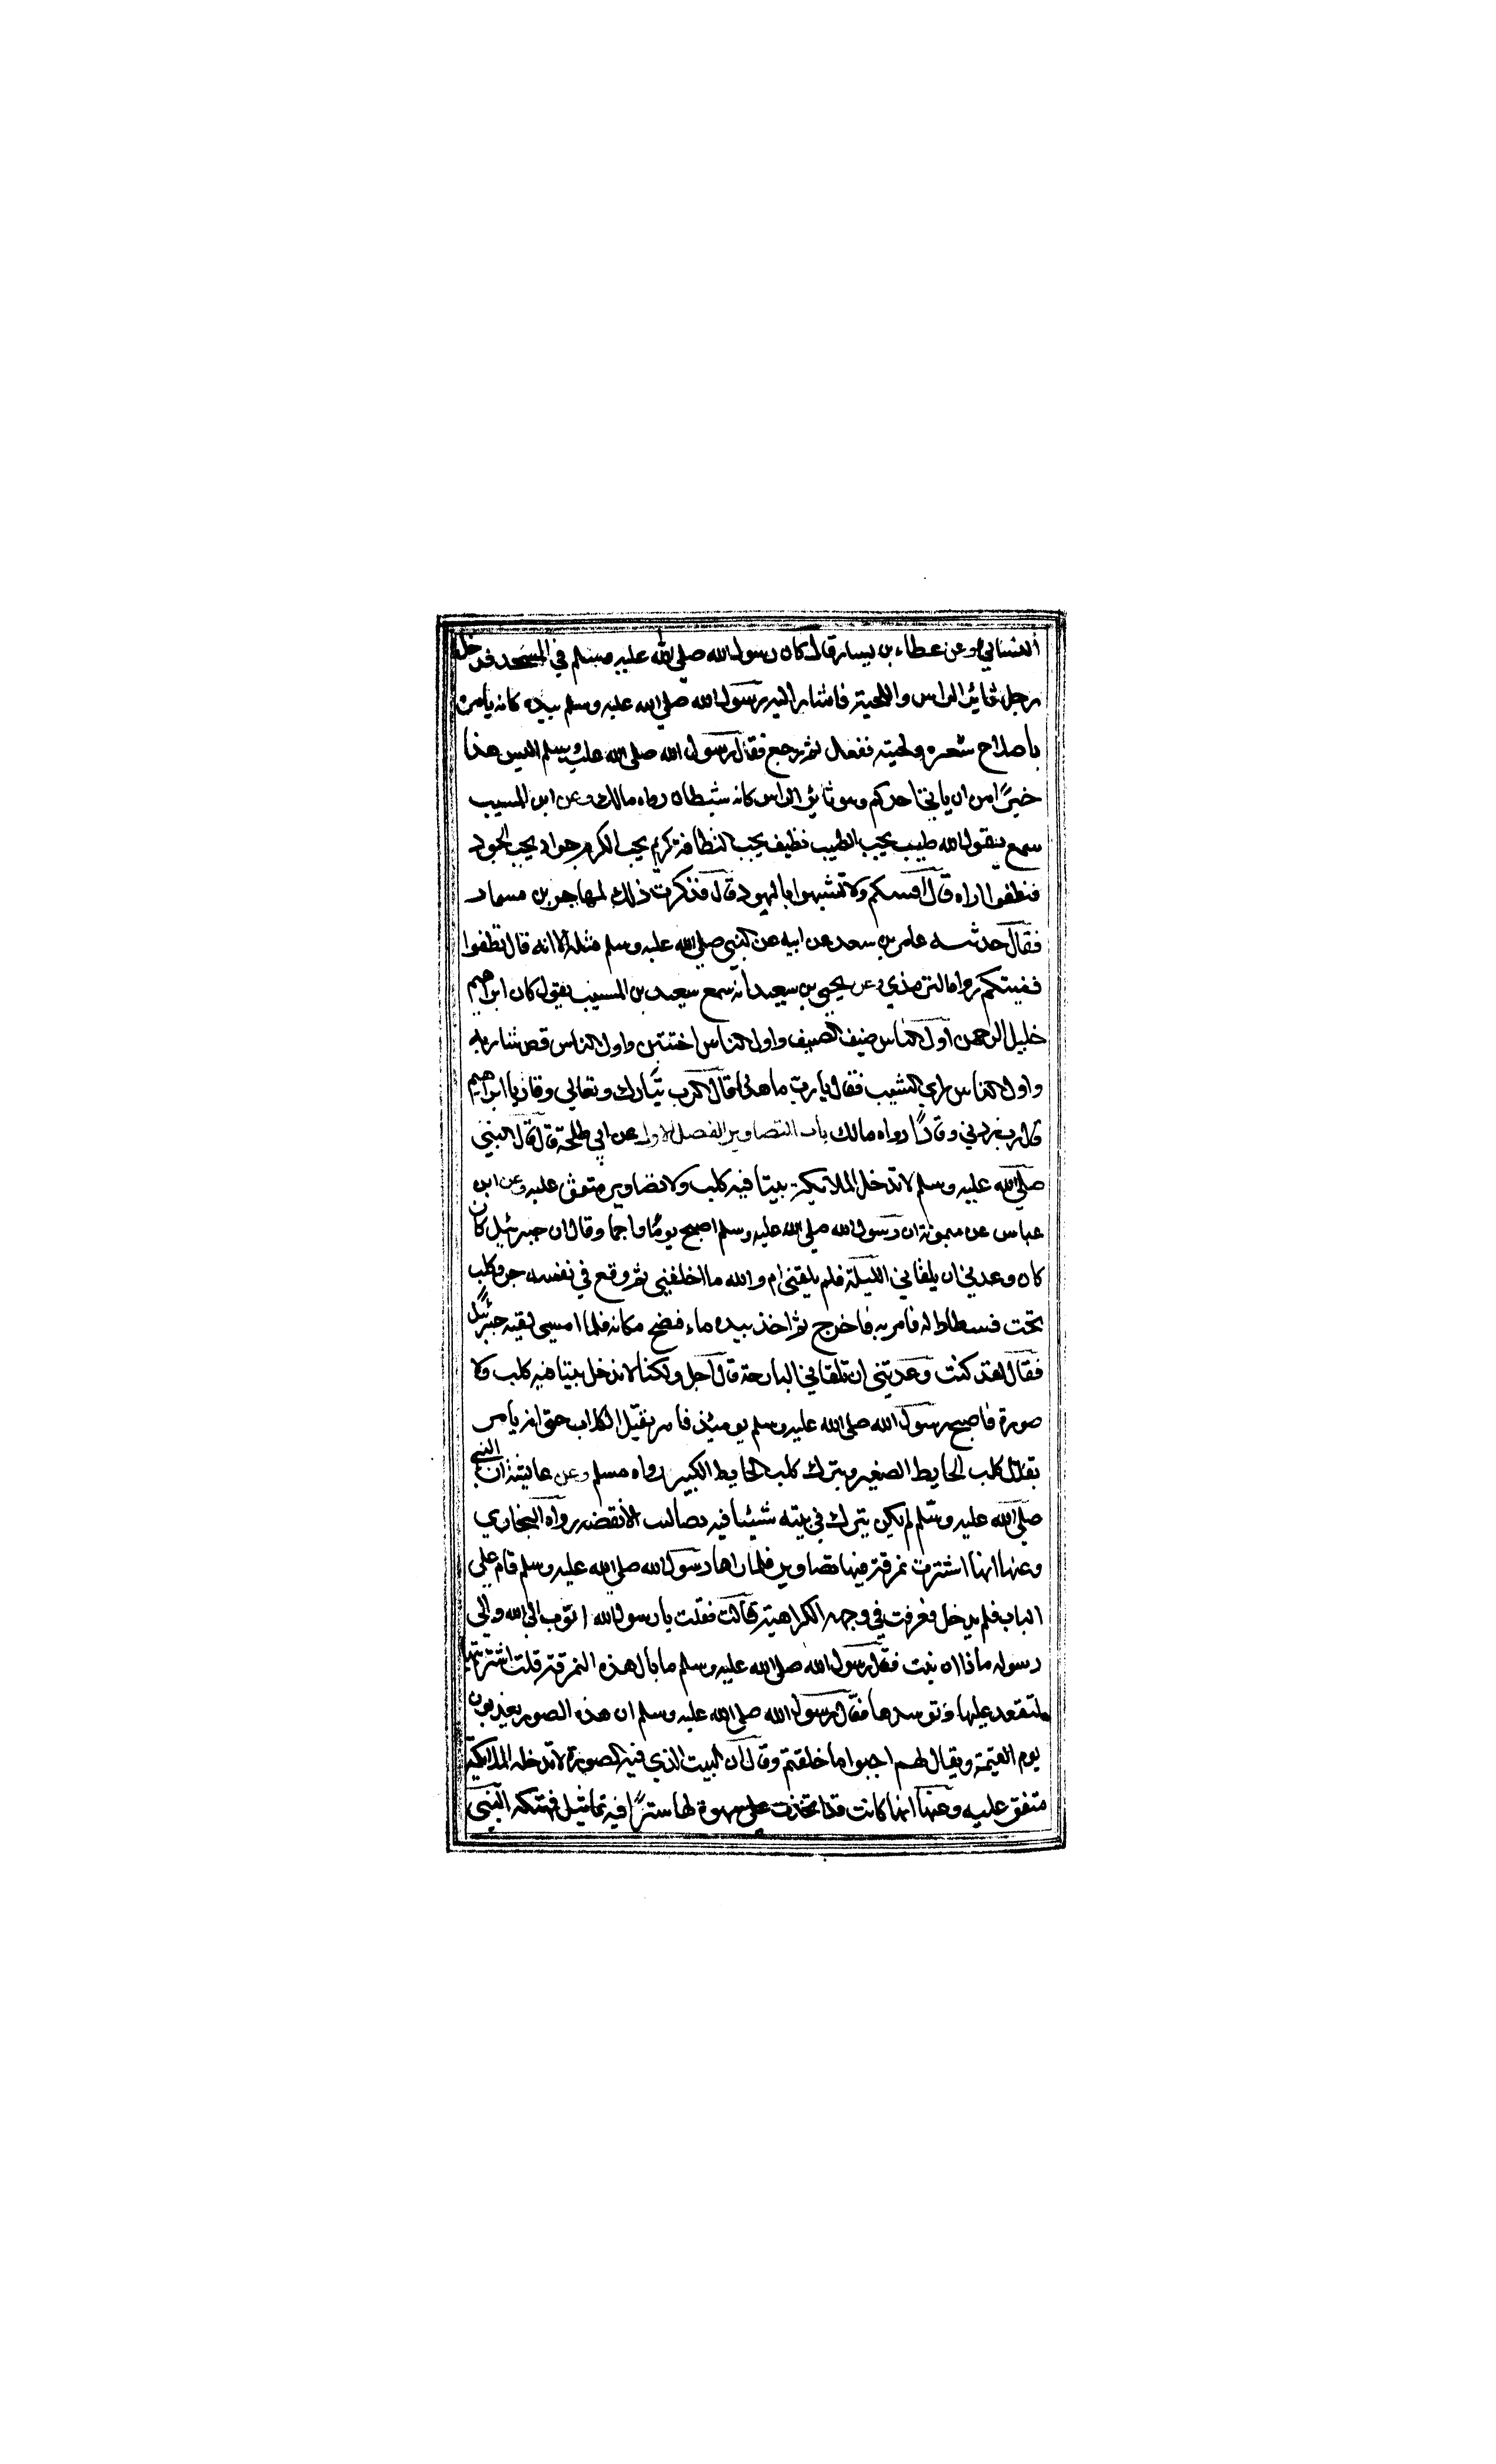 النسائي وعن عطاء بن يسار قال كان رسول الله صلى الله عليه وسلم في المسجد فدخل
رجل ثائر الراس واللحية فاشار اليه رسول الله صلى الله عليه وسلم بيده كانه يامره
باصلاح شعره ولحيته ففعل ثم رجع فقال رسول الله صلى الله عليه وسلم اليس هذا
خيرًا من ان ياتي احدكم وهو ثائر الراس كانه شيطان رواه مالك وعن ابن المسيب
سمع يقول الله طيب يحب الطيب نظيف يحب النظافة كريم يحب الكرم جواد يحب الجود
فنظفوا اراه قال افنيتكم ولا تشبهوا باليهود قال فذكرت ذلك لمهاجر بن مسمار
فقال حدثنيه عامر بن سعد عن ابيه عن النبي صلى الله عليه وسلم مثله الا انه قال نظفوا
افنيتكم رواه الترمذي وعن يحيى بن سعيد انه سمع سعيد بن المسيب يقول كان ابراهيم
خليل الرحمن اول الناس ضيف الضيف واول الناس اختتن واول الناس قص شاربه
واول الناس راي الشيب فقال يا رب ما هذا قال الرب تبارك وتعالى وقار يا ابراهيم
قال رب زدني وقارًا رواه مالك باب التصاوير الفصل الاول عن ابي طلحة قال قال النبي
صلى الله عليه وسلم لا تدخل الملائكة بيتا فيه كلب ولا تصاوير متفق عليه وعن ابن
عباس عن ميمونة ان رسول الله صلى الله عليه وسلم اصبح يومًا واجما وقال ان جبرئيل كان
كان وعدني ان يلقاني الليلة فلم يلقني ام والله ما اخلفني ثم وقع في نفسه جرو كلب
تحت فسطاط له فامر به فاخرج ثم اخذ بيده ماء فنضح مكانه فلما امسى لقيه جبرئيل
فقال لقد كنت وعدتني ان تلقاني البارحة قال اجل ولكنا لا ندخل بيتا فيه كلب ولا
صورة فاصبح رسول الله صلى الله عليه وسلم يومئذ فامر بقتل الكلاب حتى انه يامر
بقتل كلب الحايط الصغير ويترك كلب الحايط الكبير رواه مسلم وعن عايشة ان النبي
صلى الله عليه وسلم لم يكن يترك في بيته شيئا فيه تصاليب الا نقضه رواه البخاري
وعنها انها اشترت نمرقة فيها تصاوير فلما راها رسول الله صلى الله عليه وسلم قام على
الباب فلم يدخل فعرفت في وجهه الكراهية قالت فقلت يا رسول الله اتوب الى الله والى
رسوله ماذا اذنبت فقال رسول الله صلى الله عليه وسلم ما بال هذه النمرقة قلت اشتريتها
لتقعد عليها وتوسدها فقال رسول الله صلى الله عليه وسلم ان هذه الصور يعذبون
يوم القيمة ويقال لهم احيوا ما خلقتم وقال ان البيت الذي فيه الصورة لا تدخله الملايكة
متفق عليه وعنها انها كانت قد اتخذت على سهوة لها سترًا فيه تماثيل فهتكه النبي